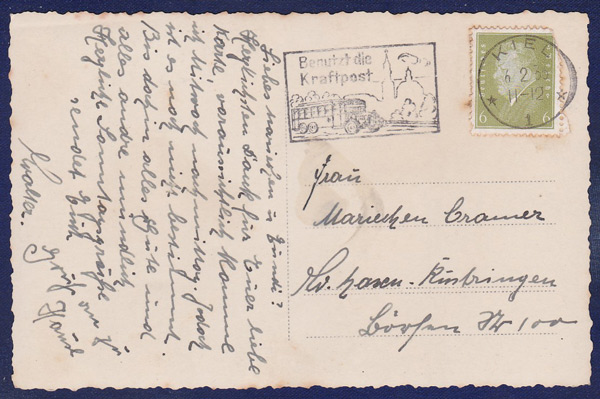 Liebes Mariechen u. Gundi?
Herzlichsten Dank für Euer liebe
Karte, voraussichtlich komme
ich Mittwoch nachmittag. Jedoch
ist es noch nicht bestimmt
Bis dahin alles Gute und
alles andre mündlich
Herzliche Sonntagsgrüße
sendet Euch
Walter.
Gruß an
Benutzt die
Kraftpost
KIEL
2
11-12
1
6 6
Frau
Mariechen Cramer
Börsen Str 100